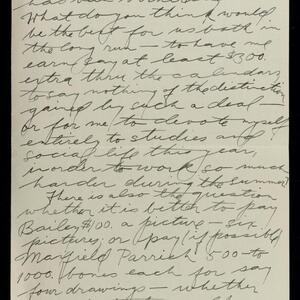 What do you think would
be the best for us both in
the long run — to have me
earn say at least $300.
extra thru the calendars
to say nothing of the distinction
gained by such a deal —
or for me to devote myself
entirely to studies and
social life this year
in order to work so much
harder during the summer?
There is also the question
whether it is better to pay
Bailey $100. a picture — six
pictures; or pay if possible
Maxfield Parrish 500- to
1000. bones each for say
four drawings — whether